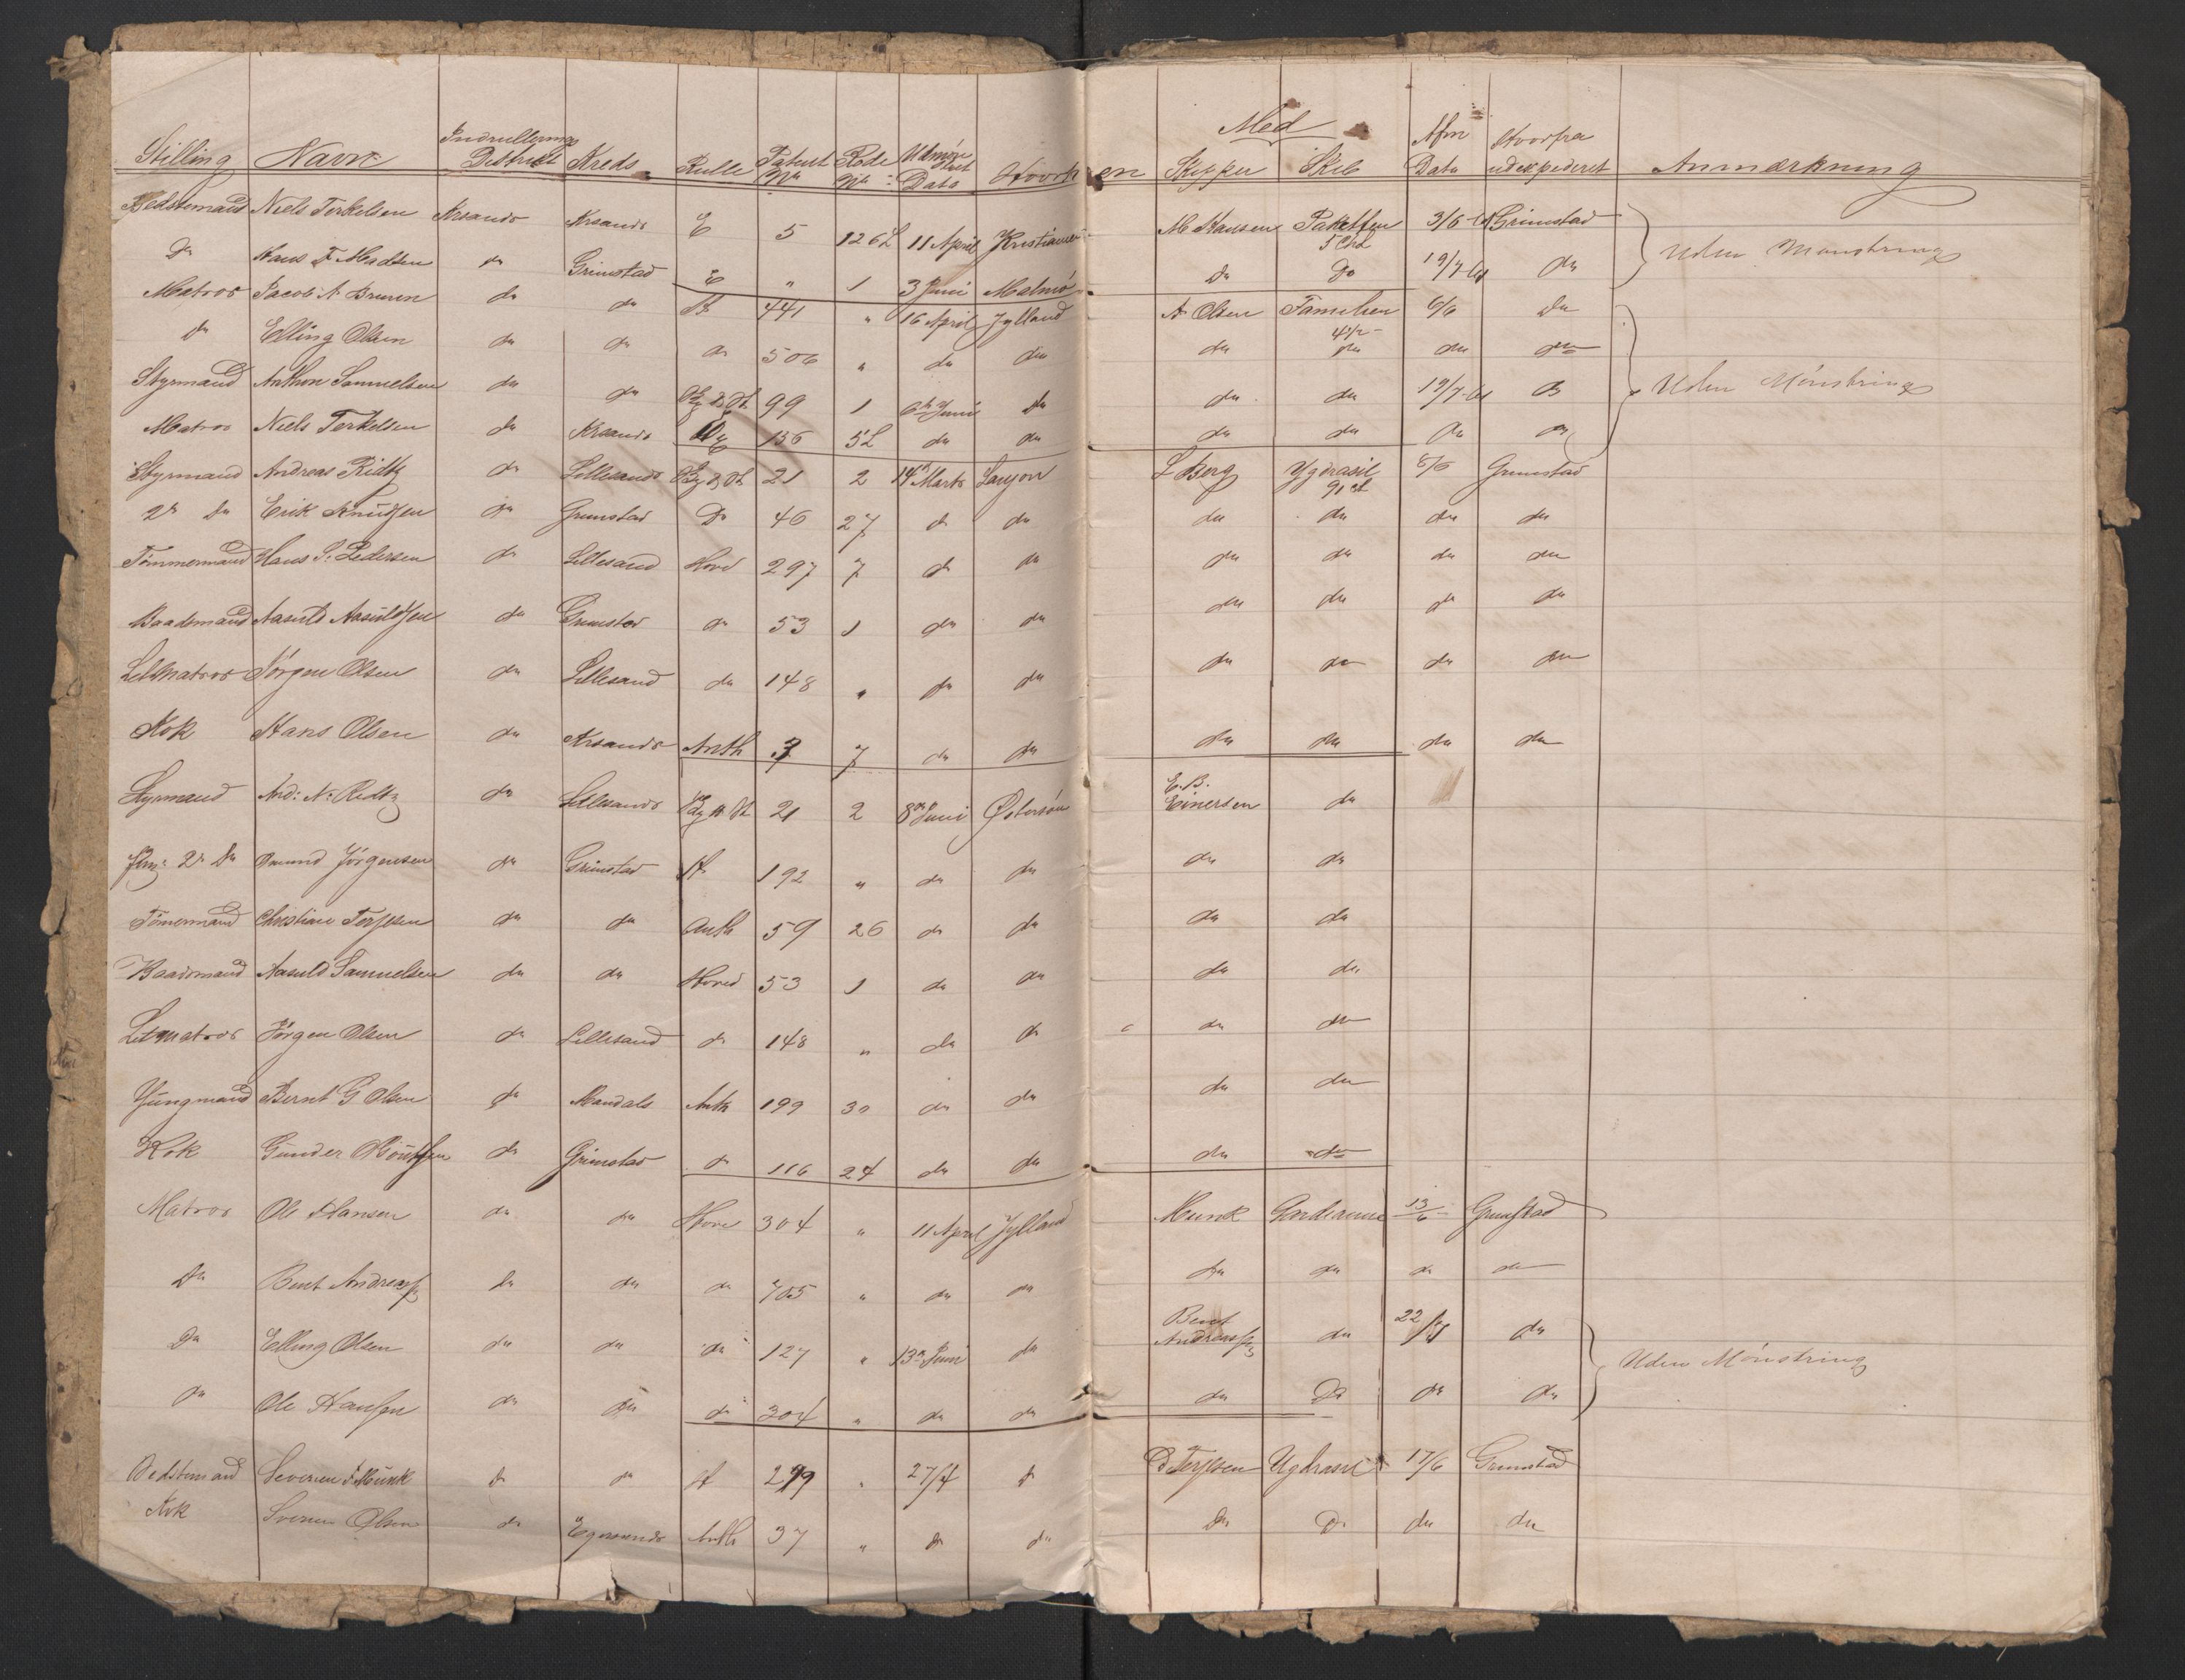 Stilling Navn Indrullerings District Kreds Rulle Patent No Rode No Udmønstret Dato Hvorhen Med Skipper Skib Afm Dato Hvorfra udexpederet Anmærkning
Bedstemand Niels Terkelsen Krsands Krsands E 5 126 L 11 April M Hansen Paketten 5 Cl 3/6 Grimstad
do Hans F. Madsen do Grimstad E " 1 3 Juni Malmö do do 19/7 do Uden Mønstring
Matros Jacob A. do do H 441 " 16 April Jylland A. Olsen Familien 4½ 6/6 do
do Elling Olsen do do do 506 " do do do do do do
Styrmand Anthon Samuelsen do do 99 1 6te Juni do do do 19/7 do Uden Mønstring
Matros Niels Terkelsen do Krsands 136 5 L do do do do do do
Styrmand Andreas Ridtz do Lillesands 21 2 14 Marts L Berg Ygdrasil 91 cl 8/6 Grimstad
2n do Erik Knudsen do Grimstad do 46 27 do do do do do do
Tömmermand Hans S. Pedersen do Lillesand Hovd 297 7 do do do do do do
Baadsmand Aasuld Aasuldsen do Grimstad do 53 1 do do do do do do
Letmatros Jörgen Olsen do Lillesand do 148 " do do do do do do
Kok Hans Olsen do Krsands Anth 7 do do do do do do
Styrmand And: N: Ridtz do Lillesands 21 2 8de Juni Østersöen E. B. Einersen do
2n do Omund Jörgensen do Grimstad H 192 " do do do do
Tömermand Christian Terjesen do do Anth 59 26 do do do do
Baadsmand Aasuld Samuelsen do do Hoved 53 1 do do do do
Letmatros Jörgen Olsen do Lillesand do 148 " do do do do
Jungmand Bernt G Olsen do Mandals Anth 199 30 do do do do
Kok Gunder do Grimstad do 116 24 do do do do
Matros Ole Hansen do do Hove 304 " 11 April Jylland Munk 13/6 Grimstad
do Bent Andreas do do do 705 " do do do do do do
do Elling Olsen do do do 127 " 13de Juni do Bent Andreas do 22/7 do Uden Mønstring
do Ole Hansen do do do 304 " do do do do do do
Bedstemand Severin F Munk do do H 299 " 27/4 do Terjesen Ygdrasil 17/6 Grimstad
Kok Olsen do Egersunds Anth 37 " do do do do do do